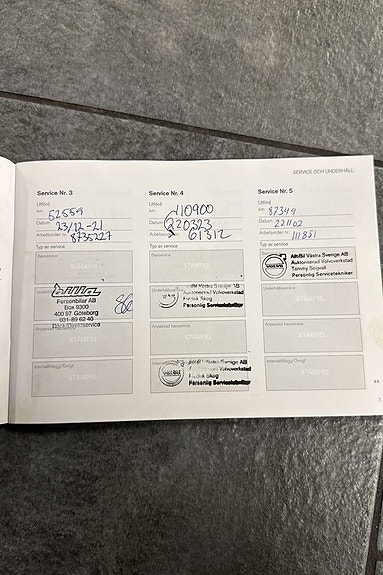 SERVICE OCH UNDERHÅLL
Service Nr. 3
Utförd
km 52559
Datum 23/12-21
Arbetsorder nr. 8735227
Typ av service
Basservice
STÄMPEL
bilia
Personbilar AB
Box 9300
400 97 Göteborg
031-89 62 40
Däck/Direktservice
Anpassad basservice
STÄMPEL
Intervalltillägg/Övrigt
STÄMPEL
Service Nr. 4
Utförd
km 110900
Datum 220323
Arbetsorder nr. 61312
Typ av service
Basservice
STÄMPEL
AltBil Västra Sverige AB
Auktoriserad Volvoverkstad
Fredrik Skog
Personlig Servicetekniker
Anpassad basservice
STÄMPEL
AltBil Västra Sverige AB
Auktoriserad Volvoverkstad
Fredrik Skog
Personlig Servicetekniker
Service Nr. 5
Utförd
km 87344
Datum 221102
Arbetsorder nr. 111851
Typ av service
VOLVO
AltBil Västra Sverige AB
Auktoriserad Volvoverkstad
Tommy Segvall
Personlig Servicetekniker
STÄMPEL
Anpassad basservice
STÄMPEL
Intervalltillägg/Övrigt
STÄMPEL